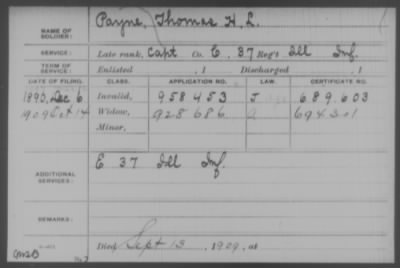 NAME OF SOLDIER: Payne, Thomas H. L.
SERVICE: Late rank, Capt Co. E, 37 Reg't Ill Inf.
TERM OF SERVICE: Enlisted , 1 Discharged , 1
DATE OF FILING. CLASS. APPLICATION NO. LAW. CERTIFICATE NO.
1890, Dec 6 Invalid, 958453 J 689.603
1909 Oct 14 Widow, 928686 694301
Minor,
ADDITIONAL SERVICES: E 37 Ill Inf.
REMARKS:
Died Sept 13, 1909, at